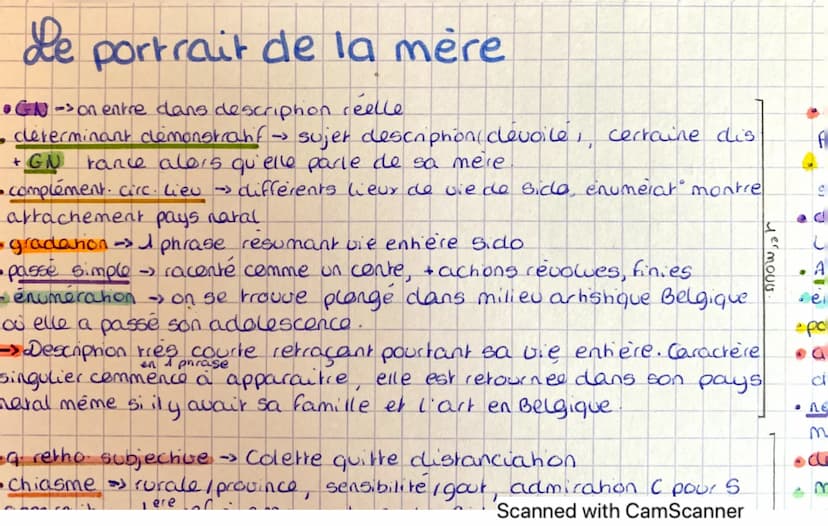 Le portrait de la mère
• GN -> on entre dans description réelle
• déterminant démonstratif -> sujet description (dévoilé), certaine dis
+ GN rance alors qu'elle parle de sa mère.
• complément. circ. lieu -> différents lieux de vie de Sido, énumérat° montre
attachement pays natal
• gradation -> 1 phrase résumant vie entière Sido
• passé simple -> raconté comme un conte, + actions révolues, finies
• énumération -> on se trouve plongé dans milieu artistique Belgique
où elle a passé son adolescence.
-> Description très courte retraçant pourtant sa vie entière. Caractère
en 1 phrase
singulier commence à apparaitre, elle est retournée dans son pays
natal même si il y avait sa famille et l'art en Belgique.
1er mouv.
• q. rétho. subjective -> Colette quitte distanciation
• chiasme => rurale / province, sensibilité / gout, admiration C pour S
1ere
Scanned with CamScanner